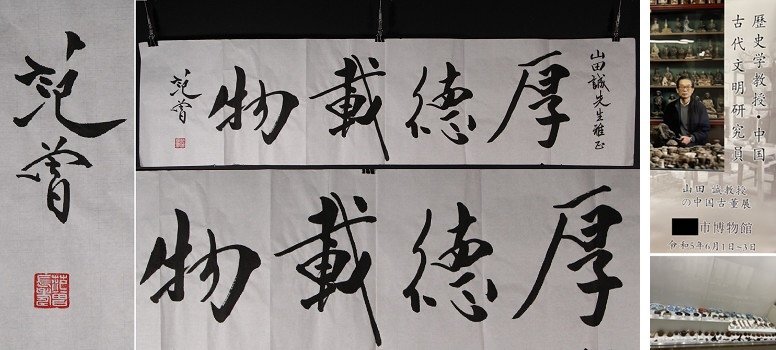 范曾
山田誠先生雅正
厚德載物
范曾
厚德載物
歴史学教授・中国
古代文明研究員
山田 誠教授
の中国古董展
市博物館
令和5年6月1日~3日